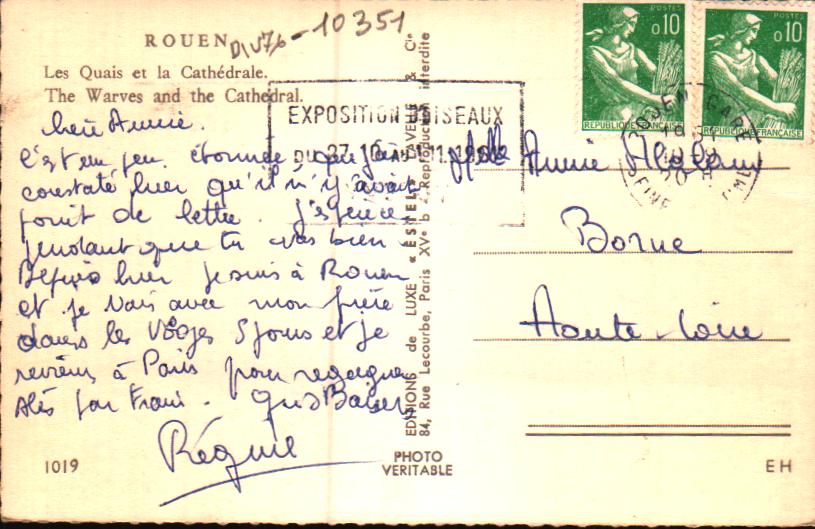 ROUEN
DIV76-10351
Les Quais et la Cathédrale.
The Warves and the Cathedral.
EXPOSITION D'OISEAUX
DU 27.10 AU
POSTES
0,10
REPUBLIQUE FRANÇAISE
POSTES
0,10
REPUBLIQUE FRANÇAISE
ROUEN GARE
Chère Annie.
C'est un peu étonnée que j'ai
constaté hier qu'il n'y avait
point de lettre. J'espère
pendant que tu vas bien
Depuis hier je suis à Rouen
et je vais avec mon frère
dans les Vosges 5 jours et je
reviens à Paris pour regagner
Alès par Train. Gros Baisers
Régine
Melle Annie
Borne
Haute-Loire
EDITIONS de LUXE « ESTEL » & Cie
84, Rue Lecourbe, Paris XVe Reproduction interdite
1019
PHOTO
VERITABLE
EH